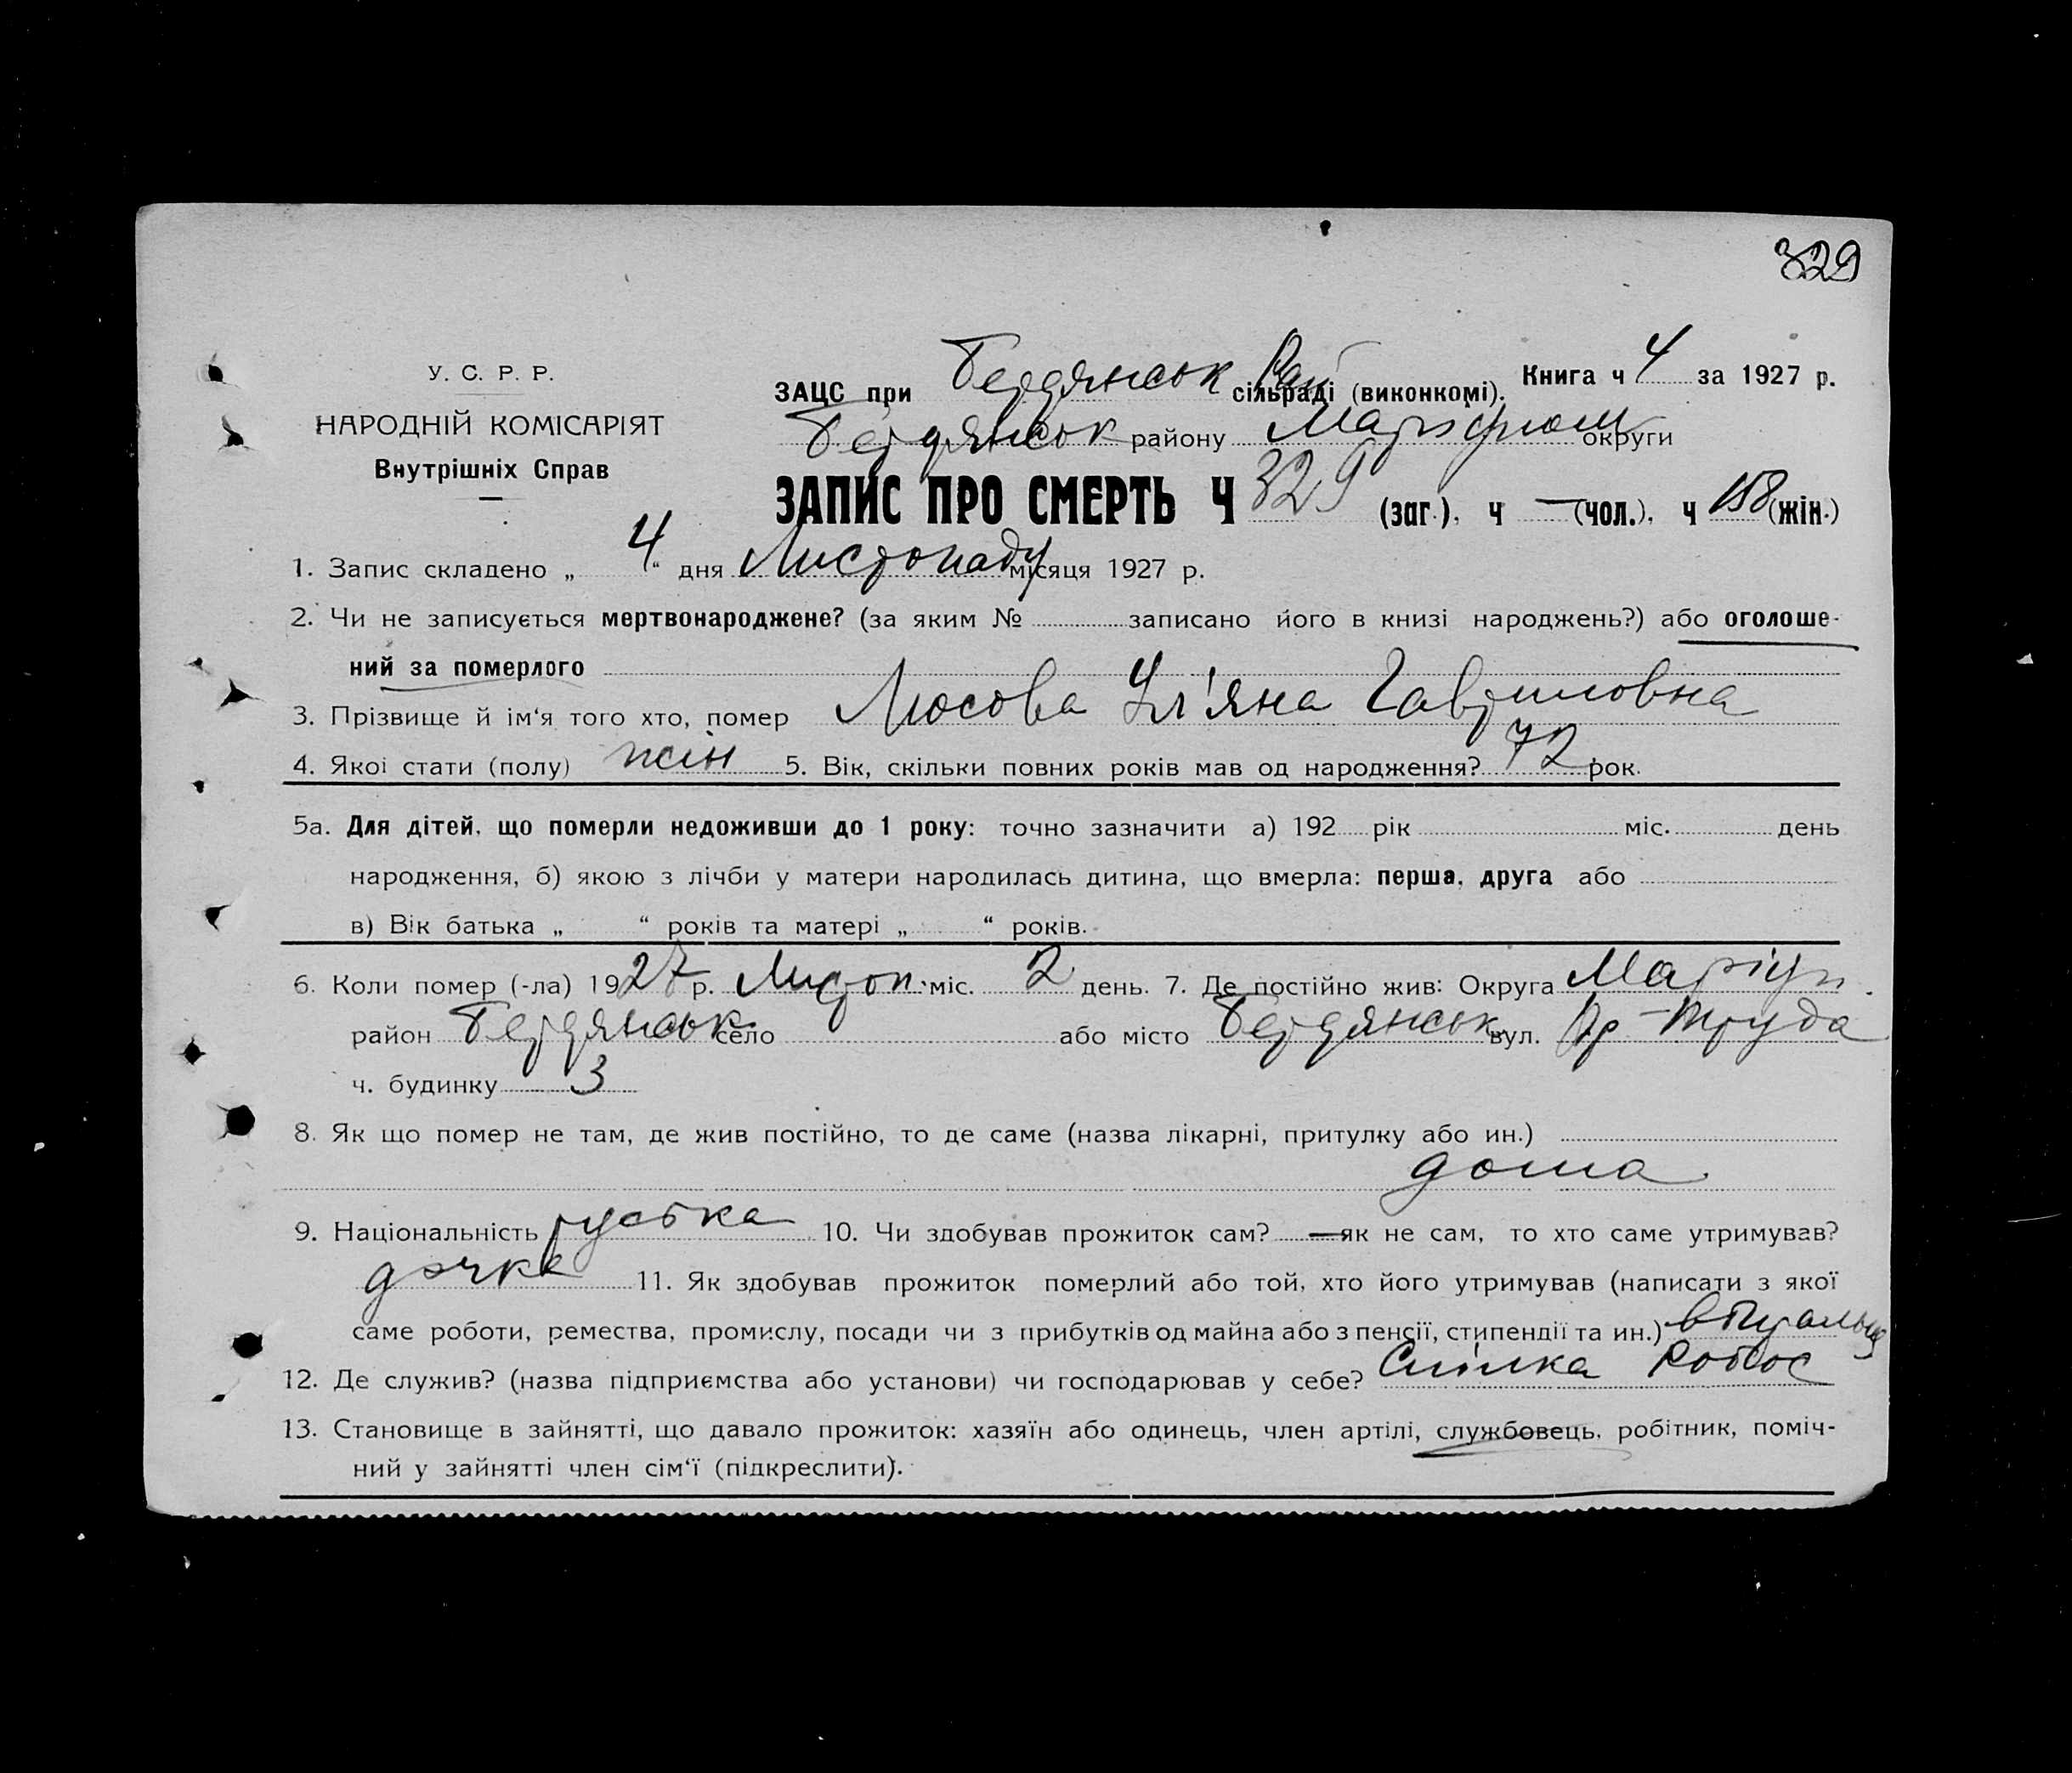 329
У. С. Р. Р.
НАРОДНІЙ КОМІСАРІЯТ
Внутрішніх Справ
ЗАЦС при Бердянськ Рай сільраді (виконкомі). Книга ч 4 за 1927 р.
Бердянськ району Маріюпол округи
ЗАПИС ПРО СМЕРТЬ Ч 329 (заг.), ч — (чол.), ч 158 (жін.)
1. Запис складено „ 4 “ дня Листопаду місяця 1927 р.
2. Чи не записується мертвонароджене? (за яким № записано його в книзі народжень?) або оголоше-
ний за померлого
3. Прізвище й ім‘я того хто, помер Люсова Ул'яна Гавриловна
4. Якої стати (полу) жін 5. Вік, скільки повних років мав од народження? 72 рок.
5а. Для дітей, що померли недоживши до 1 року: точно зазначити а) 192 рік міс. день
народження, б) якою з лічби у матери народилась дитина, що вмерла: перша, друга або
в) Вік батька „ “ років та матері „ “ років.
6. Коли помер (-ла) 1927 р. Листоп. міс. 2 день. 7. Де постійно жив: Округа Маріуп.
район Бердянськ село або місто Бердянськ вул. Пр-Труда
ч. будинку 3
8. Як що помер не там, де жив постійно, то де саме (назва лікарні, притулку або ин.)
дома
9. Національність руська 10. Чи здобував прожиток сам? — як не сам, то хто саме утримував?
дочка 11. Як здобував прожиток померлий або той, хто його утримував (написати з якої
саме роботи, ремества, промислу, посади чи з прибутків од майна або з пенсії, стипендії та ин.)
12. Де служив? (назва підприємства або установи) чи господарював у себе? Спілка Робос
13. Становище в зайнятті, що давало прожиток: хазяїн або одинець, член артілі, службовець, робітник, поміч-
ний у зайнятті член сім‘ї (підкреслити).